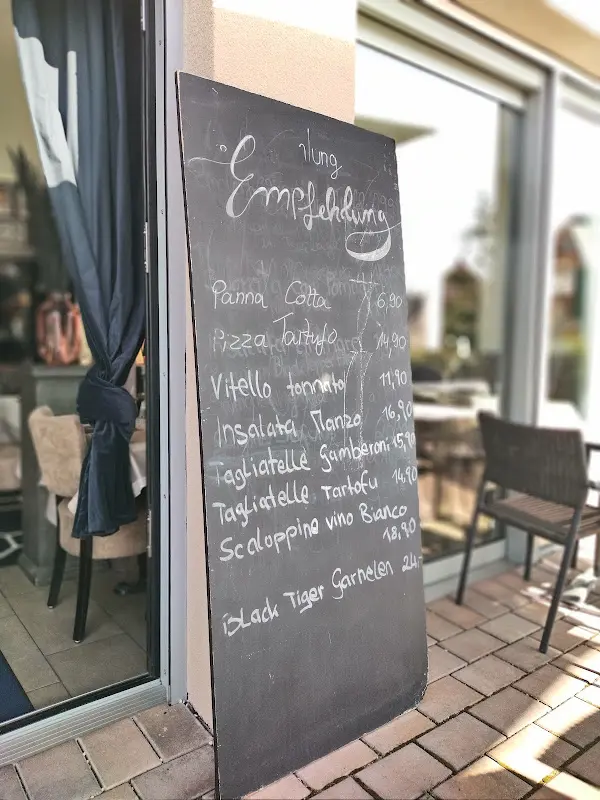 ilung
Empfehlung
Panna Cotta 6,90
Pizza Tartufo 14,90
Vitello tonnato 11,90
Insalata Manzo 16,90
Tagliatelle Gamberoni 15,90
Tagliatelle Tartofu 14,90
Scaloppine vino Bianco
18,90
Black Tiger Garnelen 24,-